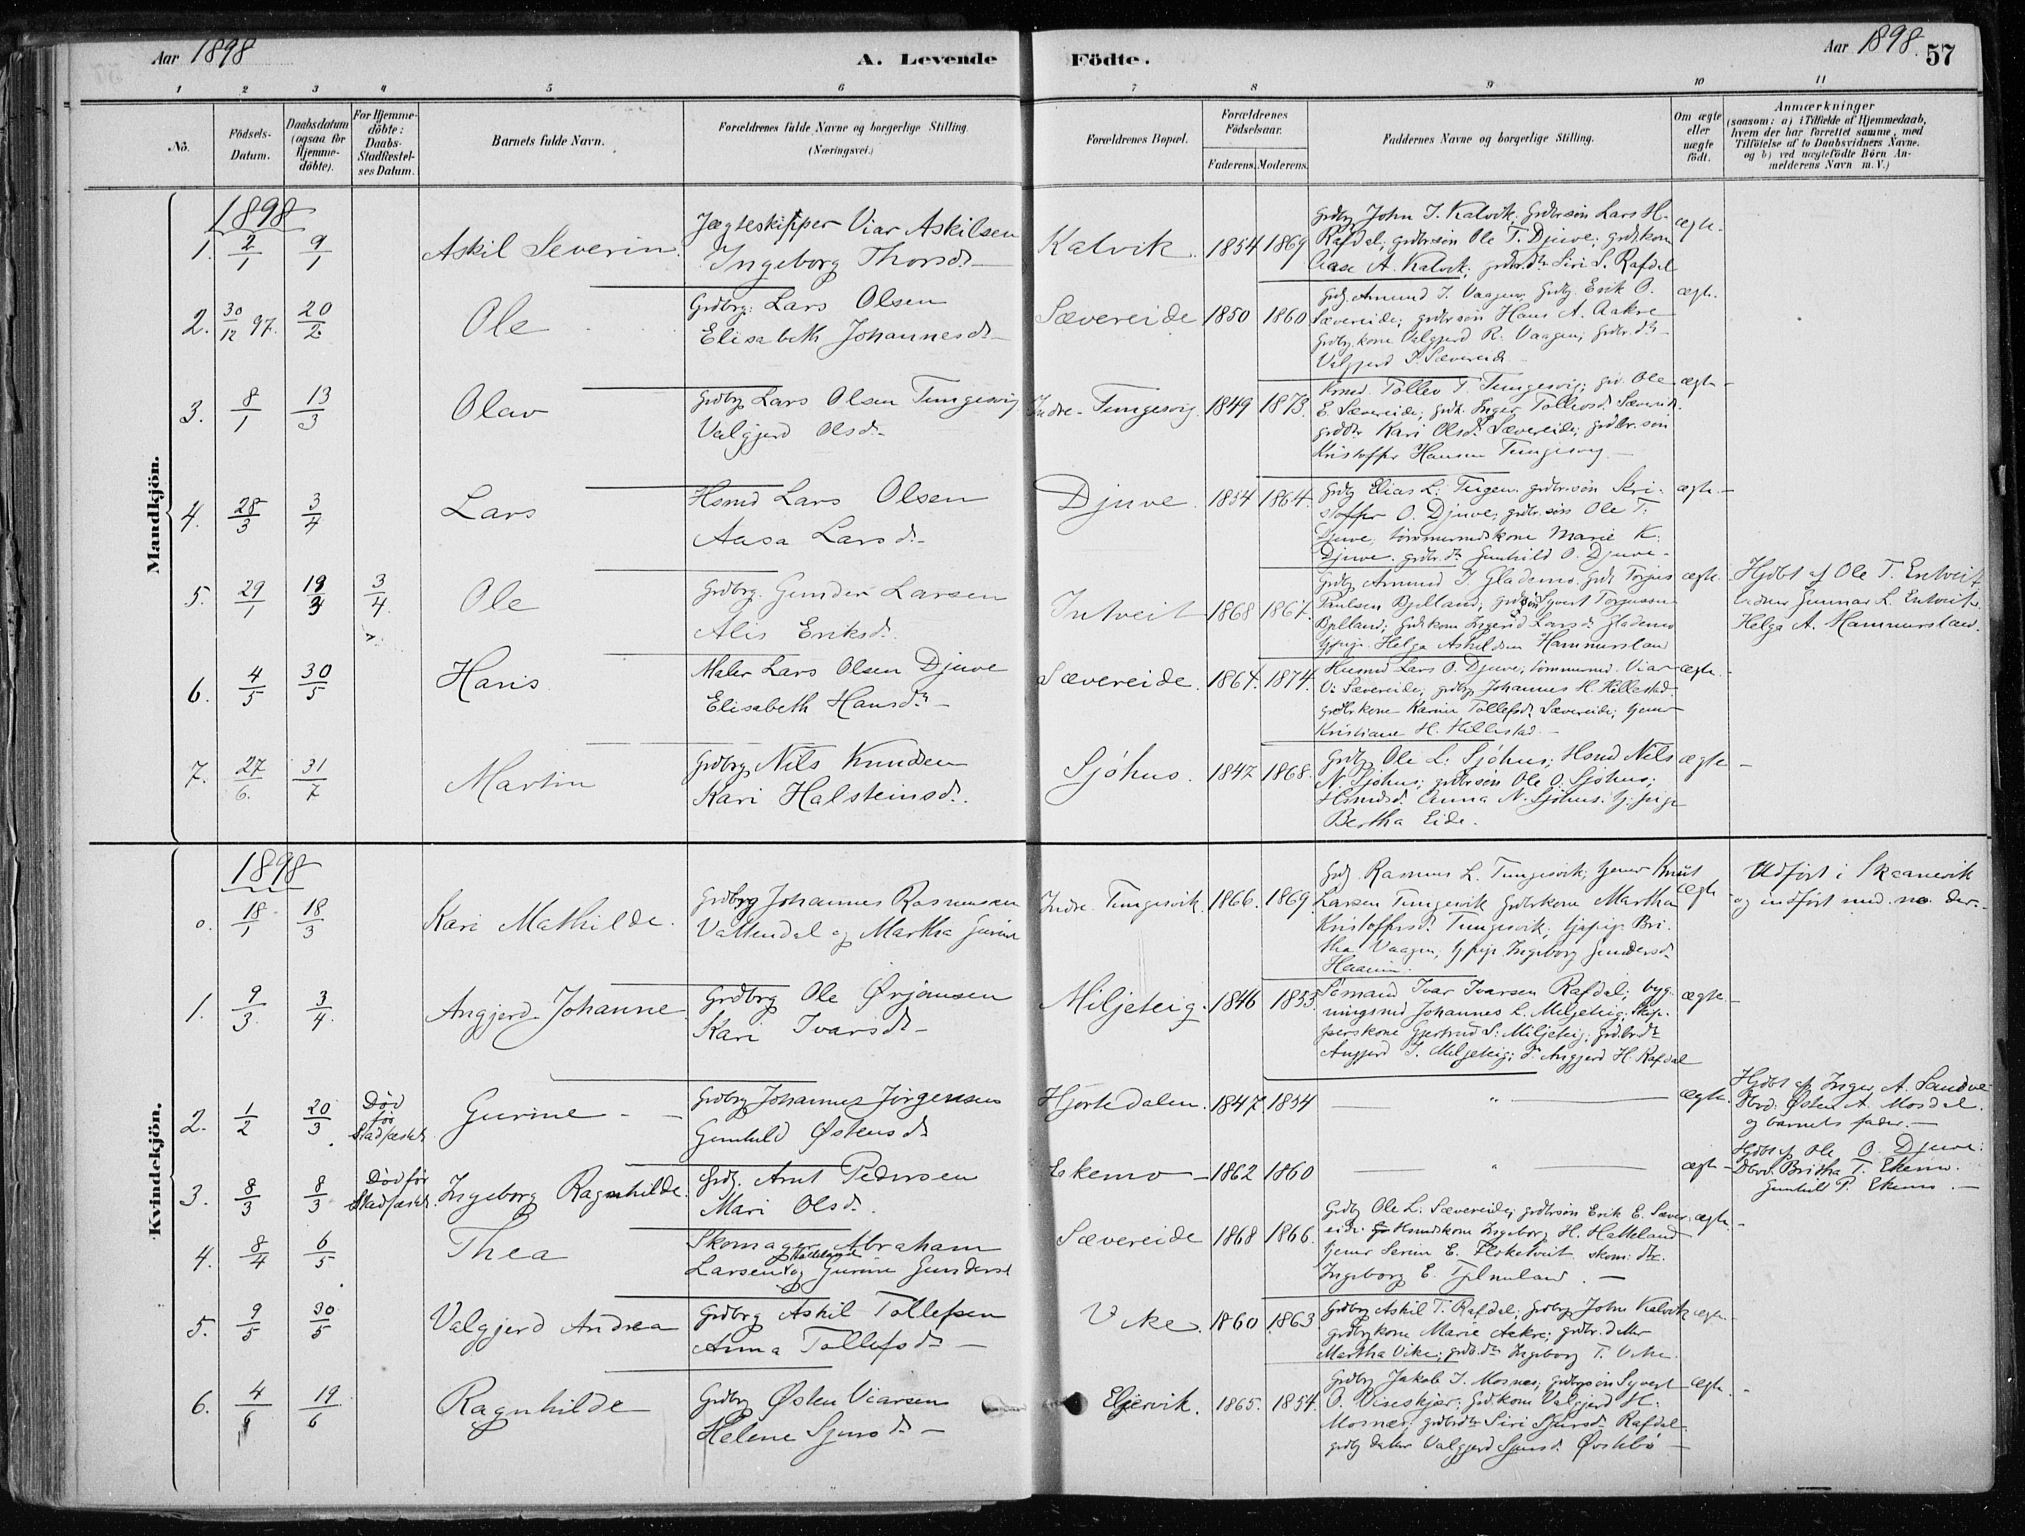 Aar 1898
A. Levende Födte.
Aar 1898.
57
1 2 3 4 5 6 7 8 9 10 11
Nö.
Födsels-
Datum.
Daabsdatum
(ogsaa for
Hjemme-
döbte).
For Hjemme-
döbte:
Daabs-
Stadfæstel-
ses Datum.
Barnets fulde Navn.
Forældrenes fulde Navne og borgerlige Stilling.
(Næringsvei.)
Forældrenes Bopæl.
Forældrenes
Födselsaar.
Faderens. Moderens.
Faddernes Navne og borgerlige Stilling.
Om ægte
eller
uægte
födt.
Anmærkninger
(saasom: a) i Tilfælde af Hjemmedaab,
hvem der har forrettet samme, med
Tilföielse af to Daabsvidners Navne.
og b) ved uægtefödte Börn An-
melderens Navn m. V.)
Mandkjön.
1898
1. 2/1 9/1 Askil Severin.
Jægteskipper Viar Askilsen
Ingeborg Thorsd.
Kalvik. 1854 1869
Grdbg John I. Kalvik; Grdbrsön Lars H.
Rafdal; grdbrsön Ole T. Djuve; grdb.kone
Aase A. Kalvik; grdbr.dtr Siri S. Rafdal
ægte.
2. 30/12 97. 20/2 Ole
Grdbrg. Lars Olsen
Elisabeth Johannesd.
Sævereide 1850 1860
Grdb. Amund I. Vaagen, Grdbg. Erik O.
Sævereide; grdbrsön Hans A. Aakre
Grdbg.kone Valgjerd R. Vaagen; grdbr.dtr
Valgjerd I. Sævereide
ægte.
3. 8/1 13/3 Olav
Grdbrg Lars Olsen Tungesvig
Valgjerd Olsd.
Indre-Tungesvig. 1849 1873.
Tollev T. Tungesvig; Ole
E. Sævereide; Inger Tollevsd. Sævereide.
grdbdtr Kari Olsd. Sævereide; grdbr.sön
Kristoffer Hansen Tungesvig
ægte
4. 28/3 3/4 Lars
Hsmd Lars Olsen
Aasa Larsd.
Djuve. 1854 1864.
Grdbg Elias L. grdbrsön Kri-
stoffer O. Djuve; grdbr.sön Ole T.
Djuve; tömmermdskone Marie K.
Djuve. grdbr.dtr Gunhild O. Djuve
ægte.
5. 29/1 19/3 3/4 Ole
Grdbrg. Gunder Larsen
Alis Eriksd.
Intveit 1868 1867.
Grdbg Amund I. Glademo. Grdb. Torjus
Paulsen Bjelland; grdbsön Syvert Torjussen
Bjelland; Grdb.kone Ingerid Larsd. Glademo
Helga Askildsen Hammersland
ægte.
Hjdbt af Ole T. Entveit
vidner Gunnar L. Entveit
Helga A. Hammersland.
6. 4/5 30/5 Hans
Maler Lars Olsen Djuve
Elisabeth Hansd.
Sævereide. 1867. 1874.
Husmd Lars O. Djuve; tömmermd. Viar
V. Sævereide; grdbg Johannes H. Hillestad
grdbr.kone Karine Tollefsd. Sævereide;
Kristiane H. Hillestad.
ægte.
7. 27/6. 31/7 Martin
Grdbrg Nils Knudsen
Kari Halsteinsd.
Sjöhus. 1847 1868.
Grdbg Ole L. Sjöhus; Hsmd Nils
N. Sjöhus; grdbrsön Ole O. Sjöhus;
Hsmdsd. Anna N. Sjöhus.
Bertha Eide.
ægte
Kvindekjön.
1898
0. 18/1 18/3 Kari Mathilde.
Grdbrg Johannes Rasmussen
Vattendal og Martha Gurine
Indre Tungesvik. 1866. 1869.
Grdb. Rasmus L. Tungesvik; tjener Knut
Larsen Tungesvik Grdbkone Martha
Kristoffersd. Tungesvik; tjpige Bri-
tha Vaagen, tjpige Ingeborg Gundersd.
ægte
Udfört i Skaanevik
og indfört med no. der.
1. 9/3. 3/4. Angjerd Johanne
Grdbrg Ole Ørjansen
Kari Ivarsd.
Miljeteig. 1846 1853
Sömand Ivar Ivarsen Rafdal; byg-
ningsmd Johannes L. Miljeteig; Skip-
perskone Gjertrud S. Miljeteig; Grdbrdtr
Angjerd I. Miljeteig; Angjerd H. Rafdal
ægte
2. 1/2 20/3 Död
för
Stadfæstels. Gurine
Grdbrg Johannes Jörgensen
Gunhild Østensd.
Hjortedalen. 1847 1854
ægte.
Hjdbt af Inger A. Sandve
Østen A. Mosdal.
og barnets fader.
3. 8/3 8/3 Död för
Stadfæstels. Ingeborg Ragnhilde.
Grdb. Arnt Pedersen
Mari Olsd.
Ekemo 1862 1860
ægte
Hjdbt af Ole O. Djuve.
Britha T. Ekemo.
Gunhild P. Ekemo.
4. 8/4 6/5 Thea
Skomager Abraham
Larsen Hatteland og Gurine Gundersd.
Sævereide 1868 1866.
Grdbg Ole L. Sævereide; grdbrsön Erik E. Sæver-
eide. Hsmdskone Ingeborg H. Hatteland
tjener E.
Ingeborg E.
ægte.
5. 9/5 30/5 Valgjerd Andrea
Grdbrg Askil Tollefsen
Anna Tollefsd.
Vike. 1860 1863.
Grdbrg Askil T. Rafdal; Grdbg. John Kalvik
grdbgkone Marie Aakre; grdbr. datter
Martha Vike; grdb.dtr Ingeborg T. Vike
ægte
6. 4/6 19/6 Ragnhilde
Grdbg Østen Viarsen
Helene Sjursd.
Eljervik. 1865. 1854.
Grdbg Jakob I. Mosnes; grdbgsön Syvert
O. Viseskjær; Grd.kone Valgjerd H.
Mosnes; grdbrdtr Siri Sjursd. Rafdal
grdbg datter Valgjerd Sjursd. Øvstebö
ægte.